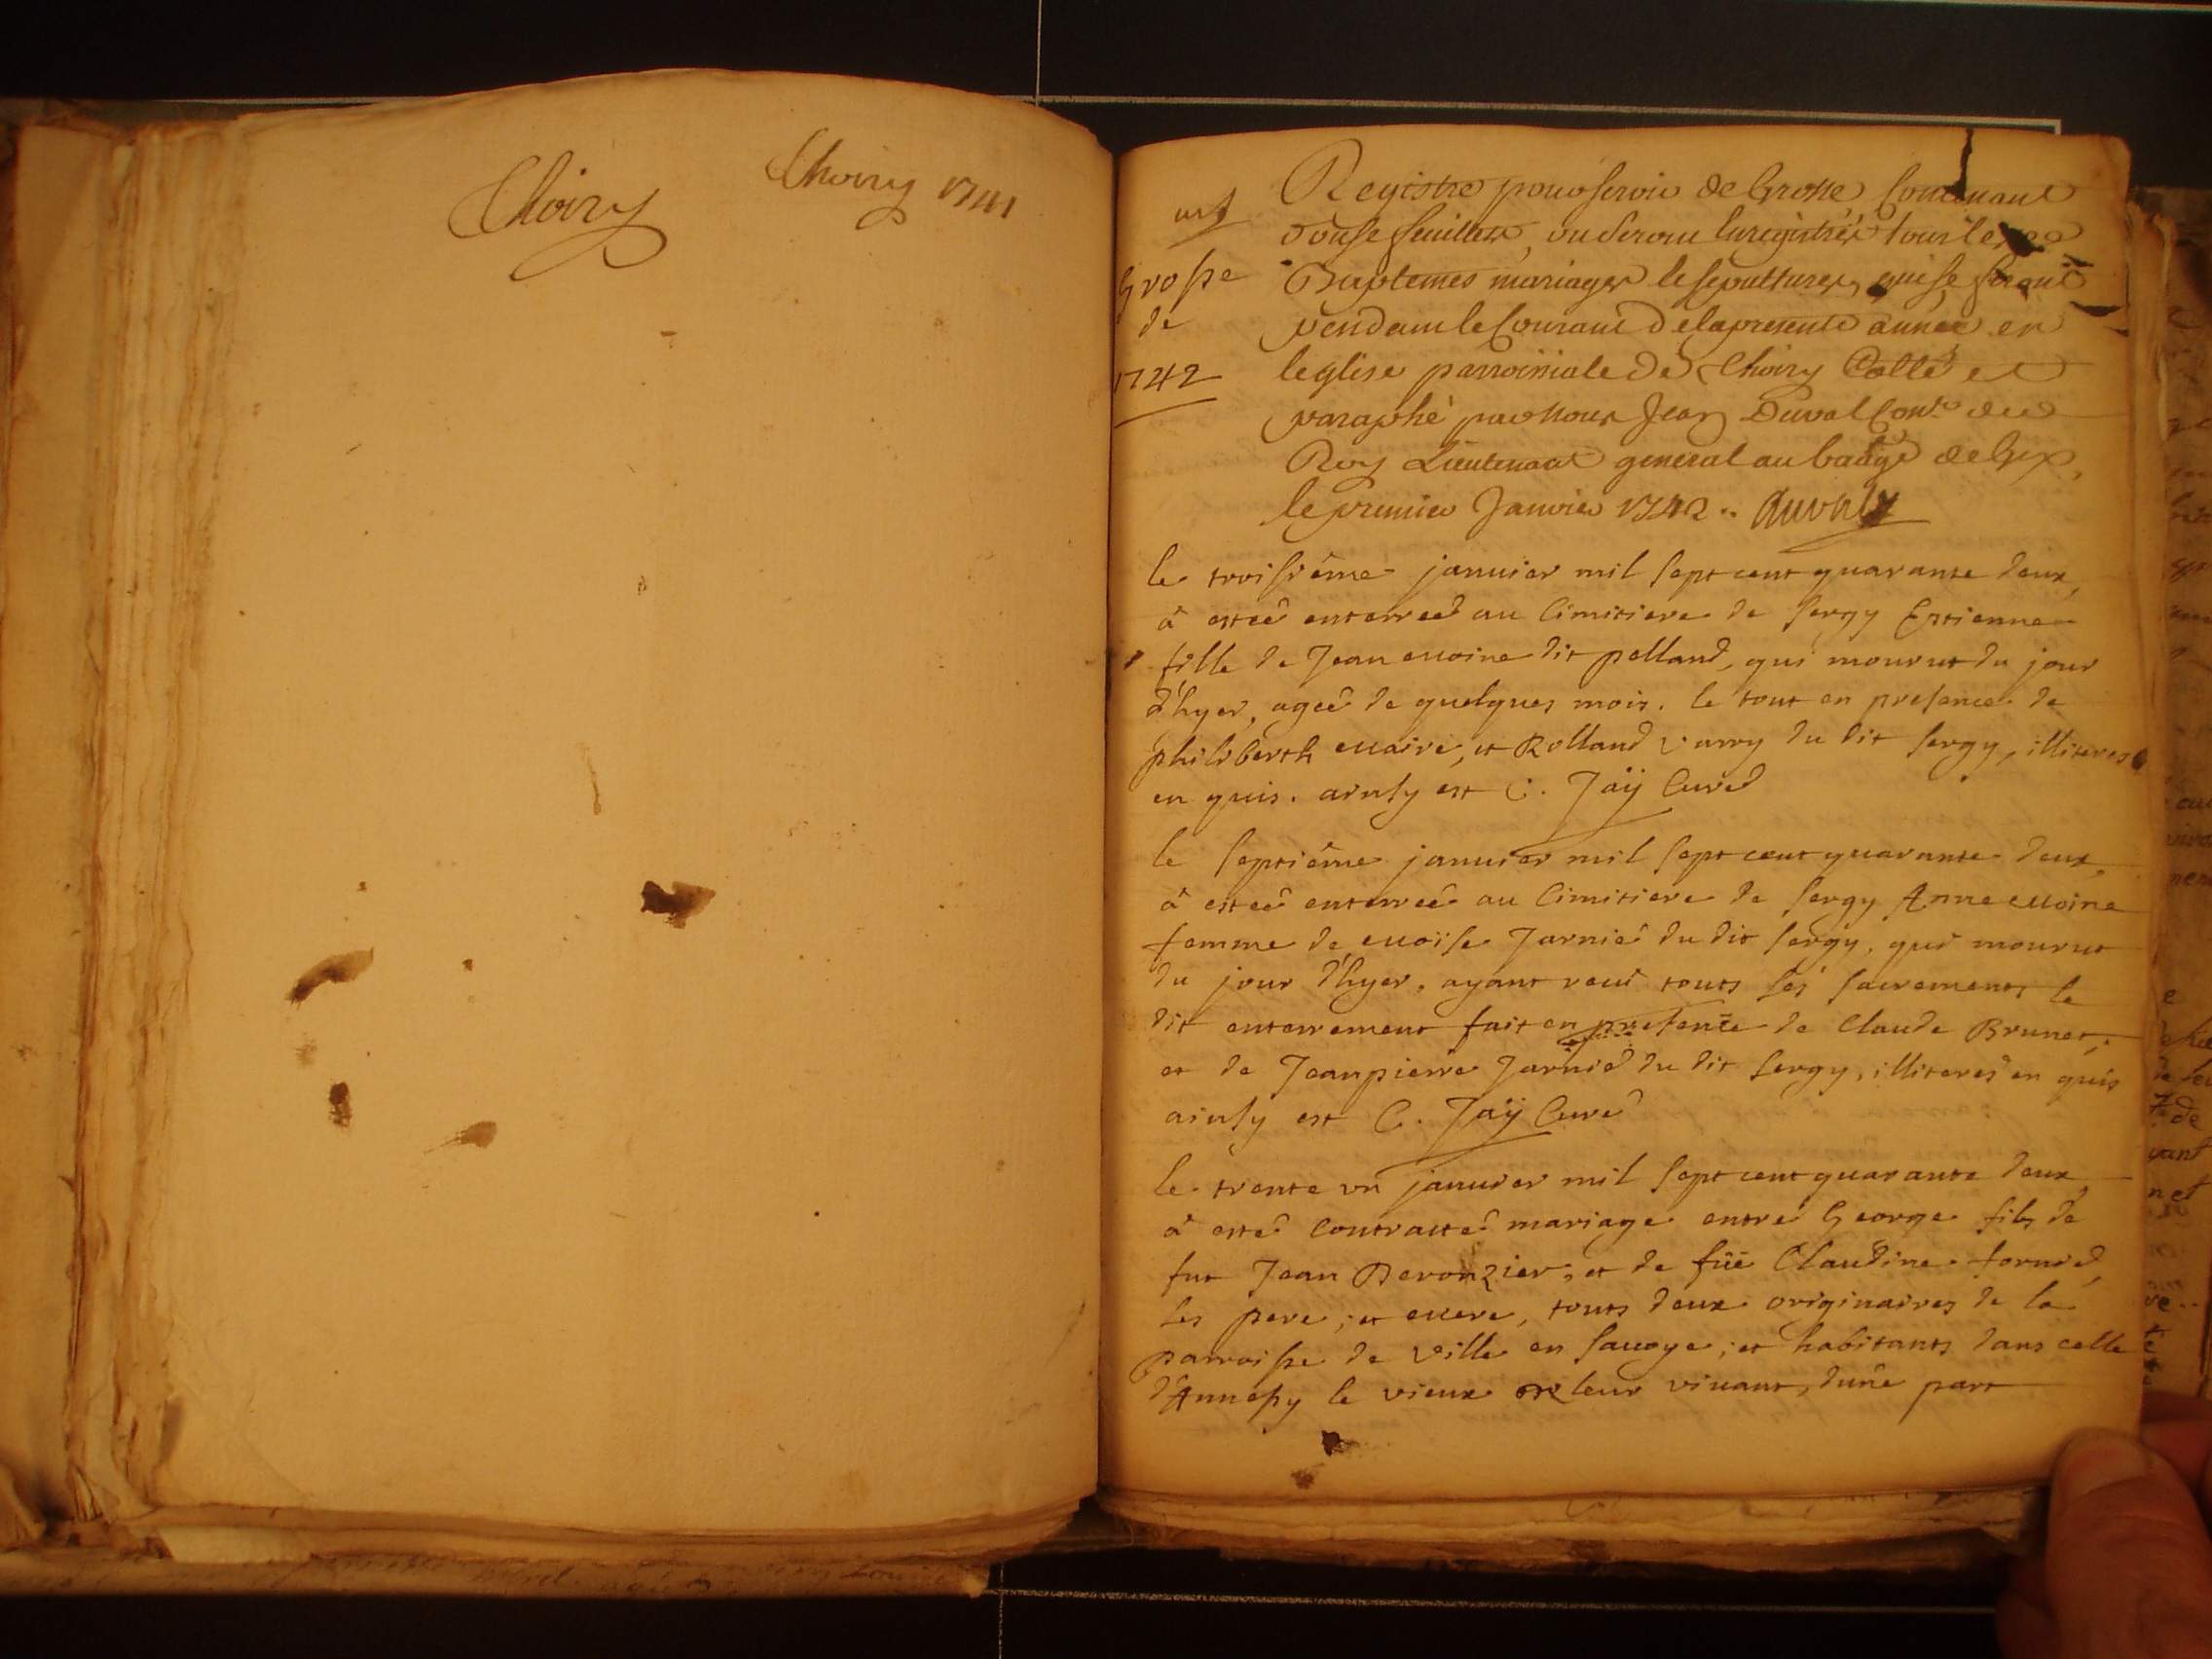 Thoiry
Thoiry 1741
Grosse
de
1742
Registre pour servir de Grosse Contenant
douse feuillets, ou seront Enregistrés tous les
Baptemes mariages les sepultures, qui se feront
pendant le Courant de la presente année en
leglise parroissiale de Thoiry Cotté et
paraphé par nous Jean Duval Conr. du
Roy Lieutenant general au baage de Gex,
le premier Janvier 1742 .. Duval
le troisiéme januier mil sept cent quarante deux,
à esteé enterreé au Cimitiere de sergy Estienne
fille de Jean Moine dit polland, qui mourut du jour
d'hyer, ageé de quelques mois. le tout en presence de
philiberth Maire, et Rolland varry du dit sergy, illiteres
en quis. ainsy est C. Jaÿ Curé
le septiéme januier mil sept cent quarante deux,
à esteé enterreé au Cimitiere de sergy Anne Moine
femme de Moïse Jarnié du dit sergy, qui mourut
du jour d'hyer, ayant receu touts ses sacrements le
dit enterrement fait en presence de Claude Brunet,
et de Jeanpierre Jarnié du dit sergy, illiteres en quis
ainsy est C. Jaÿ Curé
le trente un januier mil sept cent quarante deux
à esté Contracté mariage entre George fils de
fut Jean Deronzier, et de fuë Claudine fornié,
ses pere, et Mere, touts deux originaires de la
parroisse de ville en sauoye; et habitants dans celle
d'Annessy le vieux leur viuant, d'une part